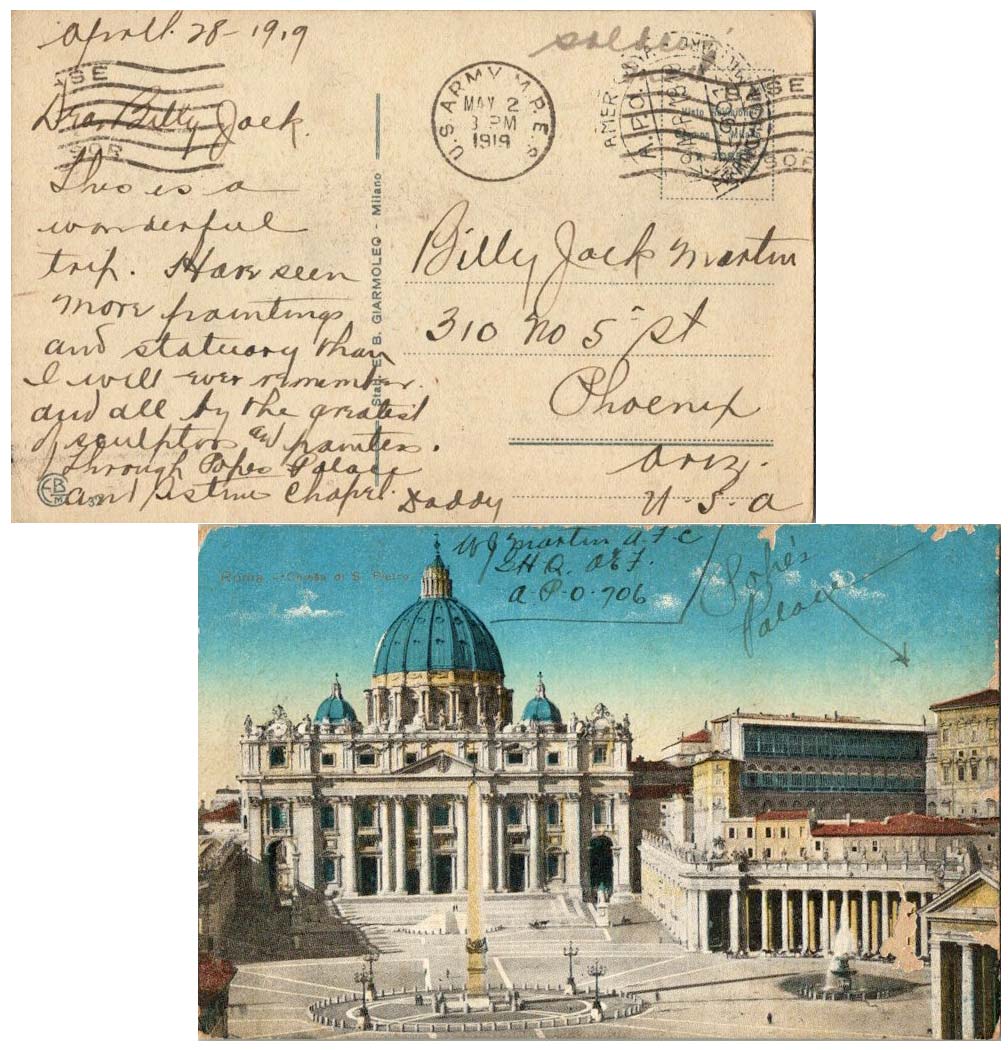 April. 28-1919
Dear Billy Jack.
This is a
wonderful
trip. Have seen
more paintings
and statuary than
I will ever remember.
and all by the greatest
of sculptors and painters.
Through Popes Palace
and Sistine Chapel. Daddy
EB
M
Stab. E. B. GIARMOLEO - Milano
soldier's
U.S. ARMY M.P.E.S.
MAY 2
3 PM
1919
A.P.O.
Billy Jack Martin
310 No 5 st
Phoenix
Ariz.
U-S-A
Roma - Chiesa di S. Pietro
W J Martin A.F.C
G H Q. A E F.
A-P-O-706
Pope's
Palace